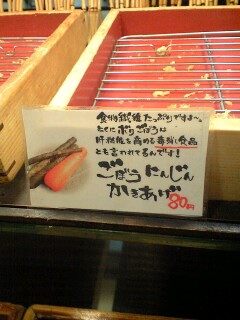 食物繊維たっぷりですよ～
とくにごぼうは
肝機能を高める毒消し食品
とも言われてるんです！
ごぼうにんじん
かきあげ
80円